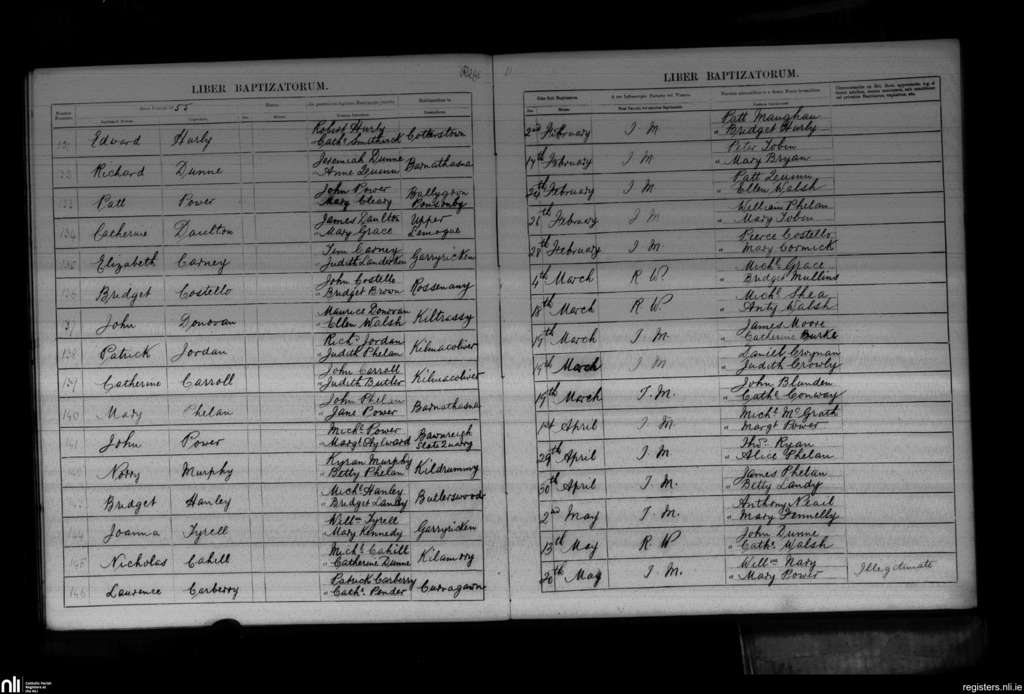 LIBER BAPTIZATORUM.
55
Edward Hurly Robert Hurly
" Cath. Smithwick Cotterstown
Richard Dunne Jeremiah Dunne
" Anne Leuinn Barnathasna
133 Patt Power John Power Ballygown
Mary Cleary Ponsonby
134 Catherine Daulton James Daulton Upper
" Mary Grace Lamogue
135 Elizabeth Carney Tim Carney
" Judith Landerken Garryricken
136 Bridget Costello John Costello
" Bridget Brown Rossenany
137 John Donovan Maurice Donovan
" Ellen Walsh Kiltrassy
138 Patrick Jordan Richd. Jordan
" Judith Phelan Kilmacoliver
139 Catherine Carroll John Carroll
" Judith Butler Kilmacoliver
140 Mary Phelan John Phelan
" Jane Power Barnathasna
141 John Power Michl. Power Bawnreigh
" Margt Aylward Slate Quarry
Norry Murphy Kyran Murphy
" Betty Phelan Kildrummy
Bridget Hanley Michl Hanley
" Bridget Lanley Butlerswood
144 Joanna Tyrell Willm Tyrell
" Mary Kennedy Garryricken
145 Nicholas Cahill Michl Cahill
" Catherine Dunne Kilamory
146 Laurence Carberry Patrick Carberry
" Cath. Ponder Curragawn
11
LIBER BAPTIZATORUM.
2nd February J. M. Patt Maughan
" Bridget Hurly
February J. M. Peter Tobin
" Mary Bryan
24th February J. M. Patt Leuinn
" Ellen Walsh
26th February J M William Phelan
" Mary Tobin
28th February J. M. Pierce Costello
" Mary Cormick
4th March R W Michl. Grace
" Bridget Mullins
18th March R W. Michl. Shea
" Anty Walsh
19th March J. M. James Moore
" Catherine Burke
19th March J M Daniel Crognan
" Judith Crowly
19th March J. M. John Blunden
" Cathe Conway
1st April J M Michl. McGrath
" Margt Power
29th April J. M Thos. Ryan
" Alice Phelan
30th April J. M. James Phelan
" Betty Landy
2nd May J. M. Anthony Neail
" Mary Fennelly
13th May R. W John Dunne
" Cath. Walsh
20th May J. M. Willm Nary
" Mary Power Illegitimate
nli
Catholic Parish
Registers at
the NLI
registers.nli.ie